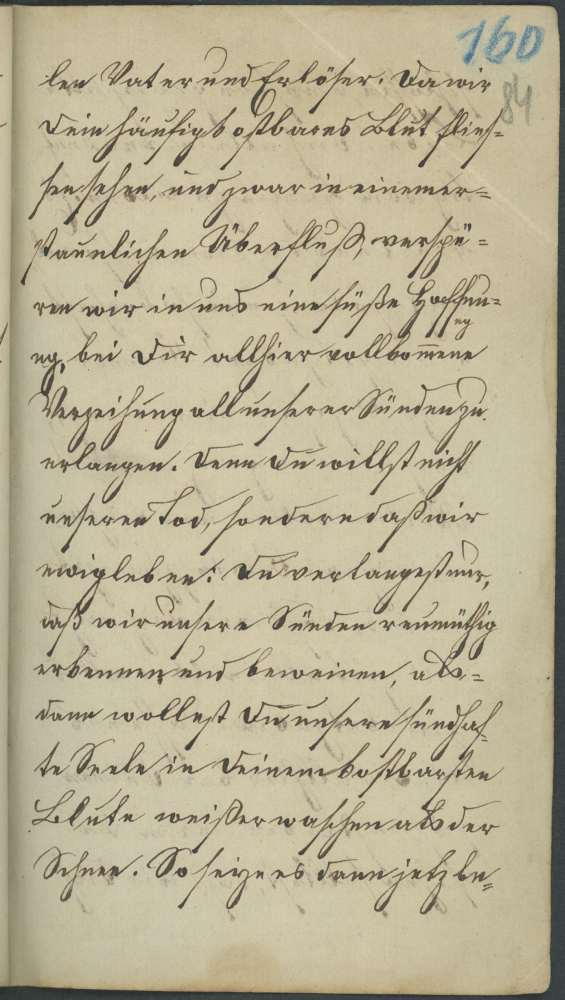 160
84
len Vater und Erlöser. Da wir
Dein häufig kostbares Blut flies-
sen sehen, und zwar in einem er-
staunlichen Überfluß, verspü-
ren wir in uns eine süße Hoffnu-
ng
ng, bei Dir allhier vollkom̅ene
Verzeihung all unserer Sünden zu
erlangen. Denn Du willst nicht
unseren Tod, sondern daß wir
ewig leben: Du verlangest nur,
daß wir unsere Sünden reumüthig
erkennen und beweinen, als-
dann wollest Du unsere sündhaf-
te Seele in Deinem kostbarsten
Blute weißer waschen als der
Schnee. So seye es dann jetz be-